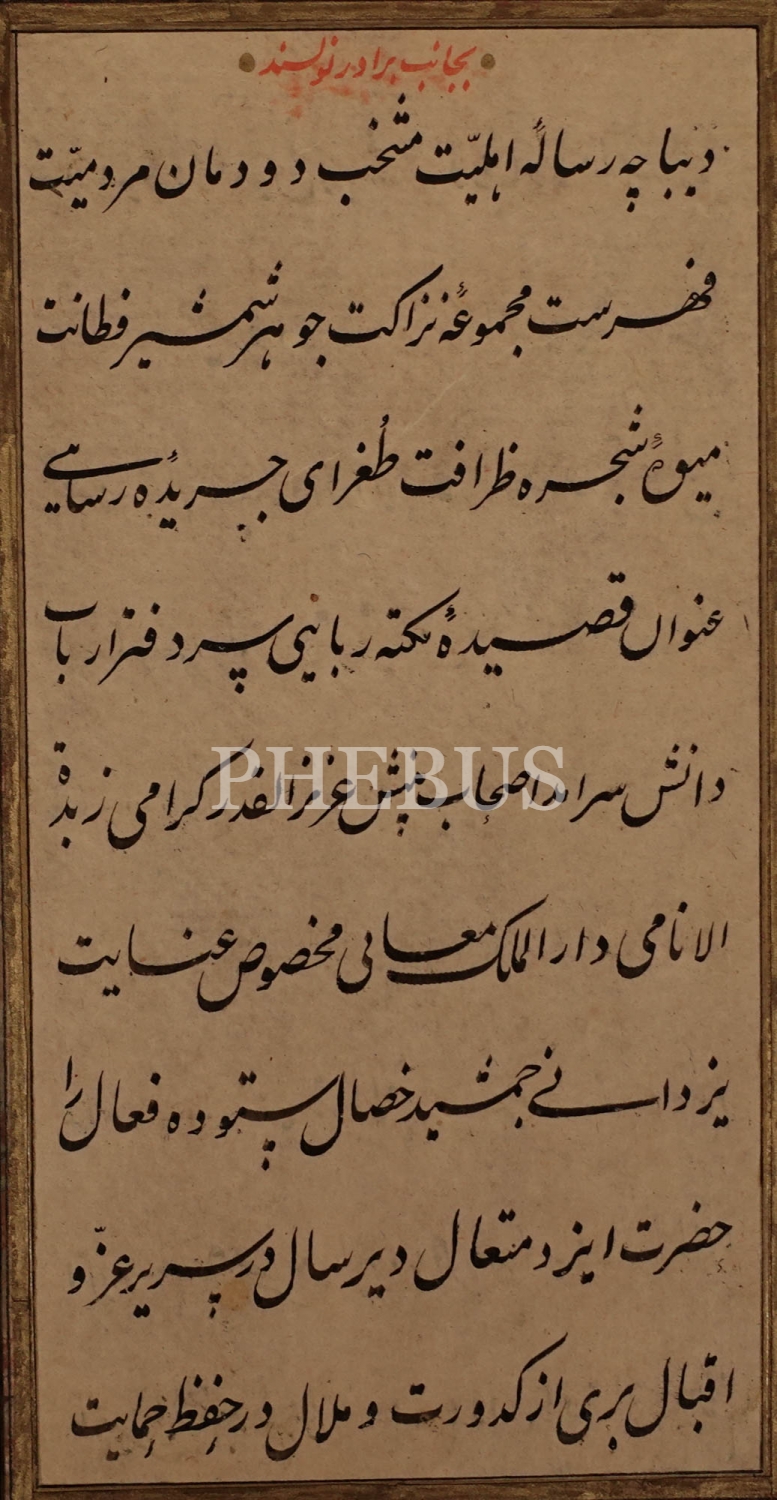 بجانب برادر نویسند
دیباچه رسالهٔ اهلیّت منتخب دودمان مردمیّت
فهرست مجموعهٔ نزاکت جوهر شمشیر فطانت
میوهٔ شجره ظرافت طُغرای جریدهٔ رسایی
عنوان قصیدهٔ نکته ربایی سر دفتر ارباب
دانش سرامد اصحاب بینش عزیزالقدر کرامی زبدة
الانامی دارالملک معانی مخصوص عنایت
یزدانی جمشید خصال ستوده فعال را
حضرت ایزد متعال دیرسال در سریر عزّ و
اقبال بری از کدورت و ملال در حِفِظ حِمایت
PHEBUS